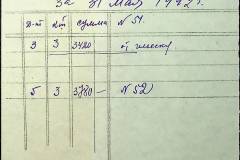 За 31 мая 1942 г.
Д-т К-т сумма № 51.
3 3 3420
5 3 3780 — № 52